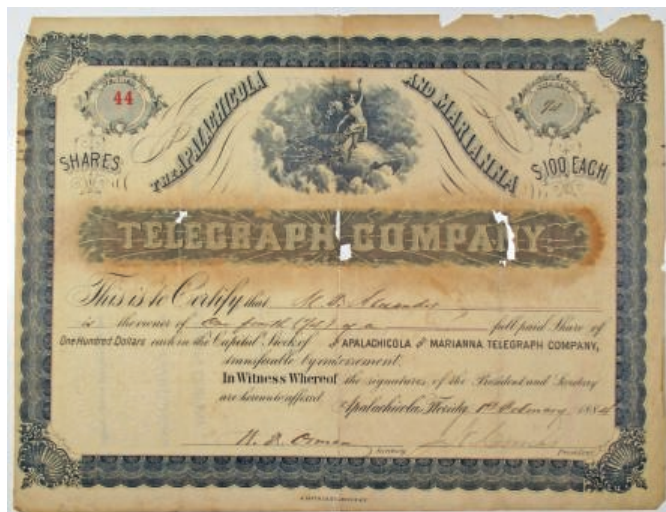 44
1/4
SHARES
THE APALACHICOLA AND MARIANNA
$100 EACH
TELEGRAPH COMPANY.
This is to Certify that
is the owner of One fourth (1/4) of a full paid Share of
One Hundred Dollars each in the Capital Stock of THE APALACHICOLA AND MARIANNA TELEGRAPH COMPANY,
transferable by endorsement.
In Witness Whereof the signatures of the President and Secretary
are hereunto affixed. Apalachicola, Florida, 1st February 1884
Secretary President